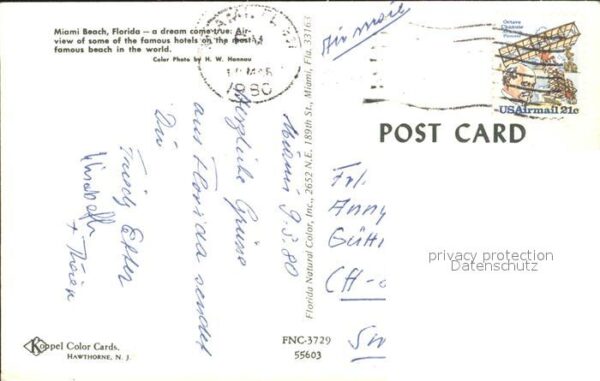 Miami Beach, Florida — a dream come true. Air-
view of some of the famous hotels on the most
famous beach in the world.
Color Photo by H. W. Hannau
MAR
1980
Air mail
Octave
Chanute
USAirmail 21c
POST CARD
Miami 9.3.80
Herzliche Grüsse
aus Florida sendet
Dir
+
Florida Natural Color, Inc., 2652 N.E. 189th St., Miami, Fla. 33163
Frl.
Anny
CH-
privacy protection
Datenschutz
Koppel Color Cards.
HAWTHORNE, N. J.
FNC-3729
55603